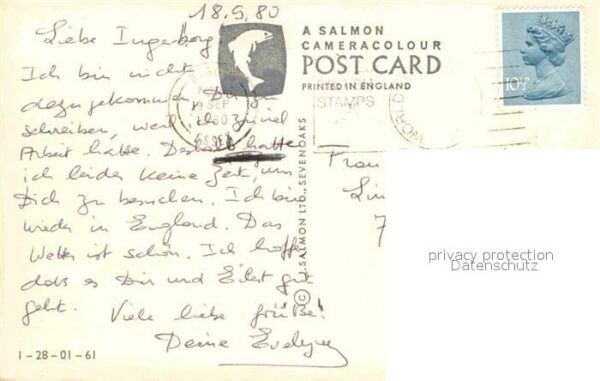 18.9.80
Liebe Ingeborg
Ich bin nicht
dazu gekommen Dir zu
schreiben, weil ich zuviel
Arbeit hatte. Deshalb hatte
ich leider keine Zeit, um
Dich zu besuchen. Ich bin
wieder in England. Das
Wetter ist schön. Ich hoffe
dass es Dir und Eilert gut
geht. Viele liebe Grüße!
Deine Evelyn
1-28-01-61
A SALMON
CAMERACOLOUR
POST CARD
PRINTED IN ENGLAND
© J. SALMON LTD., SEVENOAKS
19 SEP
STAMPS
WORLD
10½P
Frau
privacy protection
Datenschutz